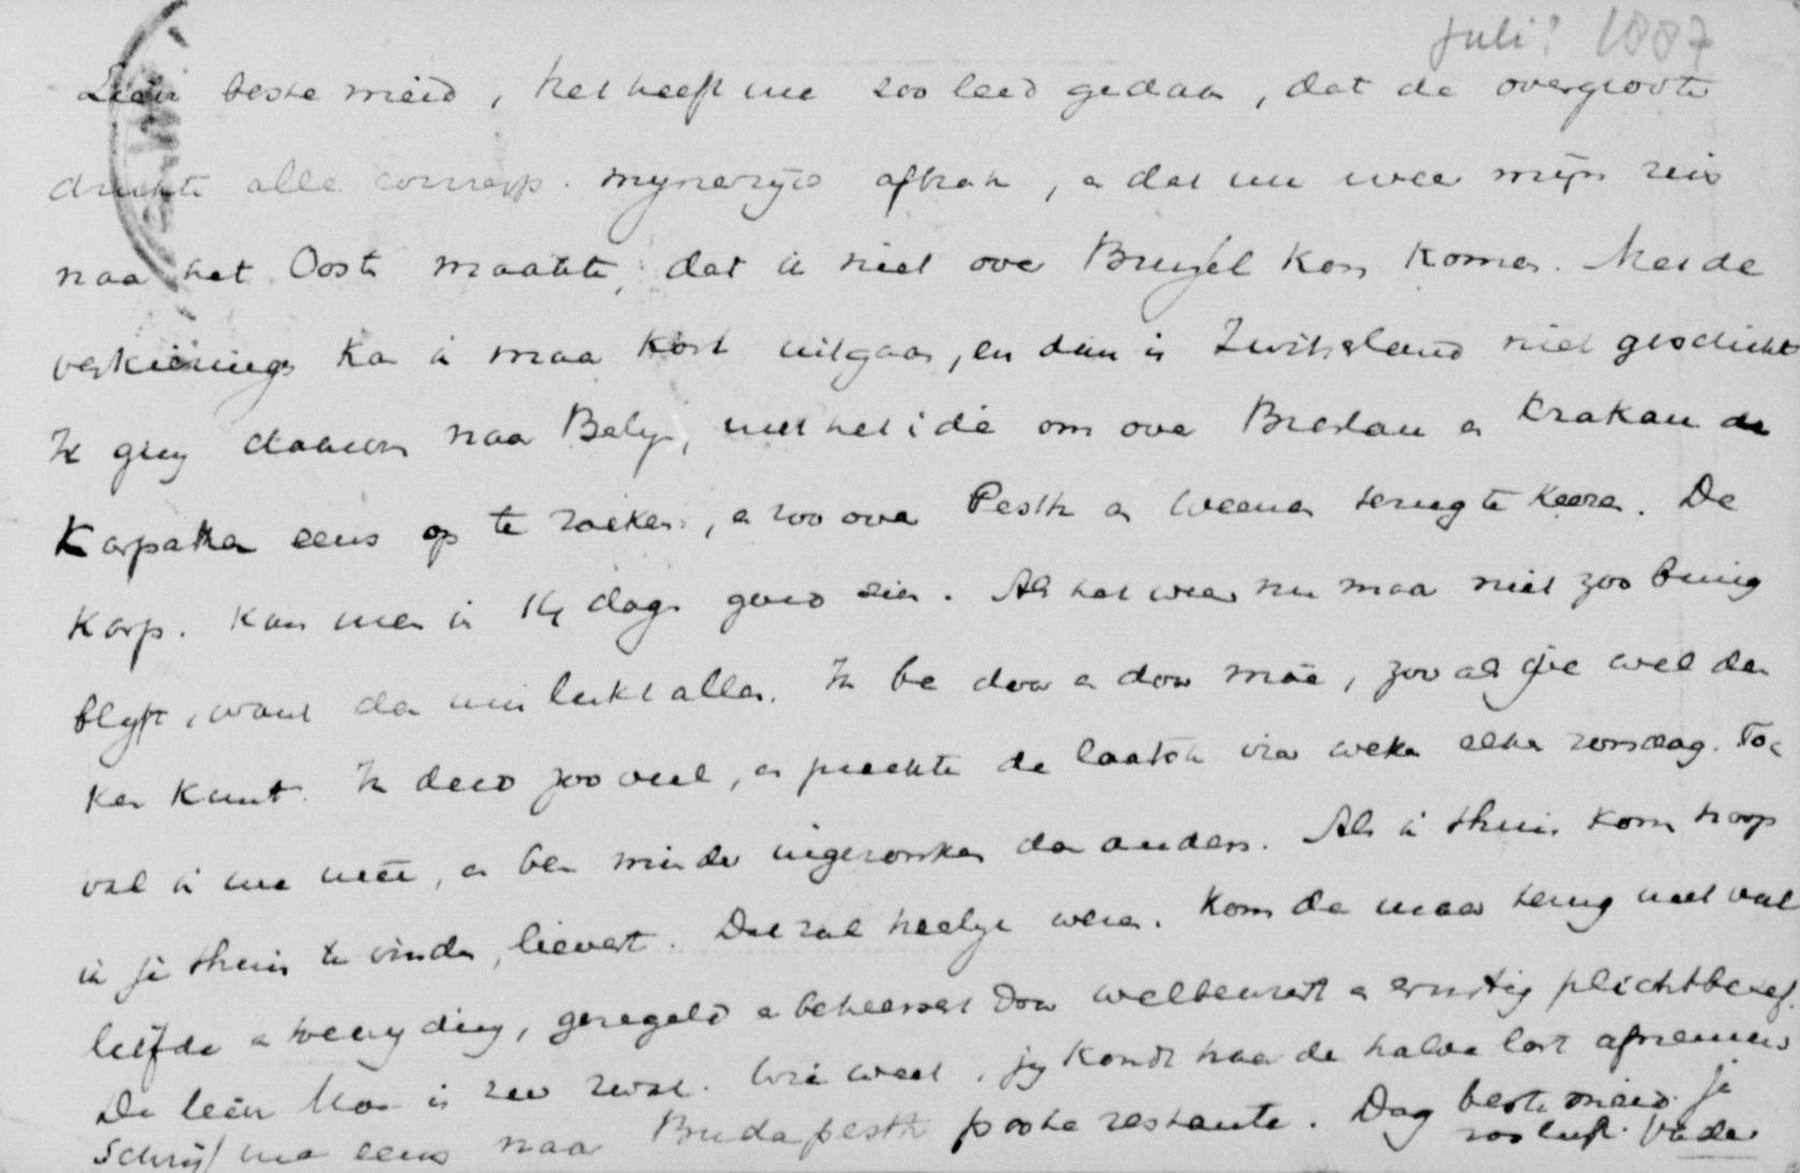 Juli? 1887
beste meid, het heeft me zoo leed gedaan, dat de overgroote
drukte alle corresp. mynerzyds afbrak, en dat nu weer mijn reis
naar het Oosten maakte, dat ik niet over Brussel kon komen. Met de
verkiezingen kan ik maar kort uitgaan, en dan is Zwitserland niet geschikt
Ik ging daarom naar Belg., met het idé om over Breslau en Krakau de
Karpathen eens op te zoeken, en zoo over Pesth en Weenen terug te keeren. De
Karp. kan men in 14 dagen goed zien. Als het weer nu maar niet zoo buiig
blyft, want dan mislukt alles. Ik ben door en door moe, zoo als je wel den
ken kunt. Ik deed zoo veel, en preekte de laatste vier weken elken zondag. Toch
val ik me mee, en ben minder ingezonken dan anders. Als ik thuis kom hoop
ik je thuis te vinden, lievert. Dat zal heerlyk wezen. Kom dan maar terug met veel
liefde en toewyding, geregeld en beheerscht door welbewust en ernstig plichtbesef.
De leen Moe is zeer zwak. Wie weet, jy kondt haar de halve last afnemen
Schrijf me eens naar Budapesth poste restante. Dag beste meid. Je
zoo liefh. Vader